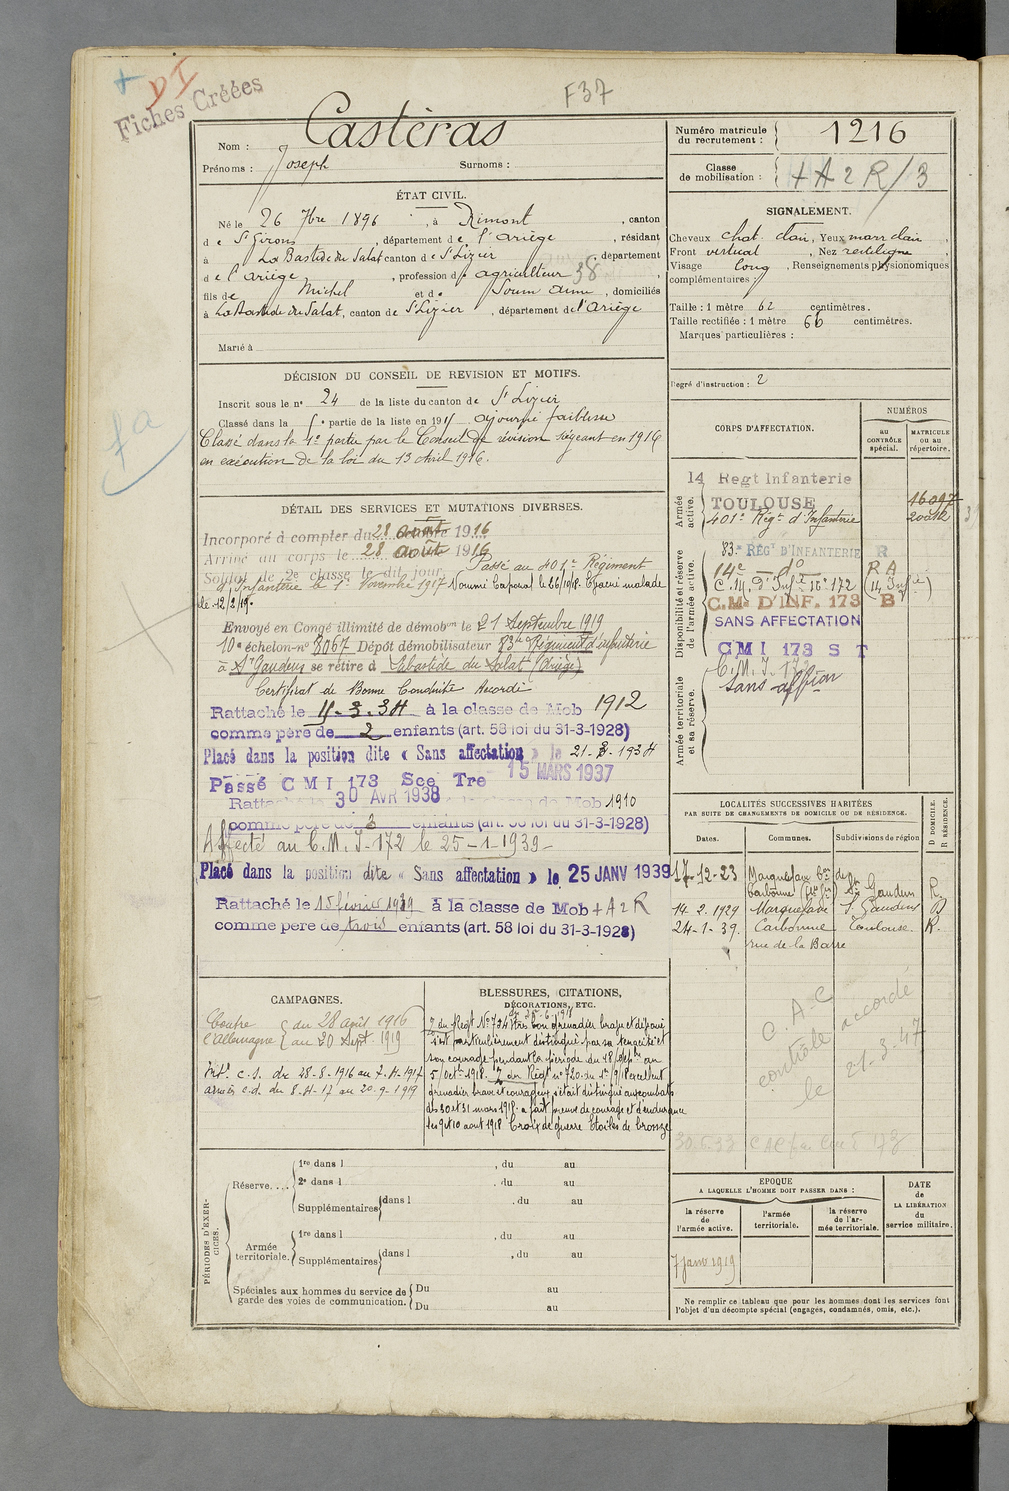 + D I
Fiches Créées
F37
Nom : Castèras
Prénoms : Joseph Surnoms :
Numéro matricule du recrutement : 1216
Classe de mobilisation : + A 2 R / 3
ÉTAT CIVIL.
Né le 26 7bre 1896, à Rimont, canton
de St Girons, département de l'Ariège, résidant
à La Bastide du Salat canton de St Lizier, département
de l'Ariège, profession d' agriculteur 38
fils de Michel et de Soum Anne, domiciliés
à La Bastide du Salat, canton de St Lizier, département de l'Ariège
Marié à
SIGNALEMENT.
Cheveux chat. clair, Yeux marr clair,
Front vertical, Nez rectiligne,
Visage long, Renseignements physionomiques
complémentaires :
Taille : 1 mètre 62 centimètres.
Taille rectifiée : 1 mètre 66 centimètres.
Marques particulières :
Degré d'instruction : 2
DÉCISION DU CONSEIL DE REVISION ET MOTIFS.
Inscrit sous le no 24 de la liste du canton de St Lizier
Classé dans la 5e partie de la liste en 1915 ajourné faiblesse
Classé dans la 1e partie par le Conseil de révision siégeant en 1916
en exécution de la loi du 13 Avril 1916.
DÉTAIL DES SERVICES ET MUTATIONS DIVERSES.
Incorporé à compter du 28 août 1916
Arrivé au corps le 28 août 1916
Soldat de 2e classe le dit jour. Passé au 401e Régiment
d'Infanterie le 1er Novembre 1917 Nommé Caporal le 26/10/18. Evacué malade
le 12/2/19.
Envoyé en Congé illimité de démobon le 21 Septembre 1919
10e échelon no 8067 Dépôt démobilisateur 83e Régiment d'infanterie
à St Gaudens se retire à Labastide du Salat (Ariège)
Certificat de Bonne Conduite Accordé
Rattaché le 15-3-34 à la classe de Mob 1912
comme père de 2 enfants (art. 58 loi du 31-3-1928)
Placé dans la position dite « Sans affectation » le 21-3-1934
Passé C M I 173 Sce Tre 15 MARS 1937
Rattaché le 30 AVR 1938 à la classe de Mob 1910
comme père de 3 enfants (art. 58 loi du 31-3-1928)
Affecté au C.M.I-172 le 25-1-1939-
Placé dans la position dite « Sans affectation » le 25 JANV 1939
Rattaché le 15 février 1939 à la classe de Mob + A 2 R
comme père de trois enfants (art. 58 loi du 31-3-1928)
CORPS D'AFFECTATION.
NUMÉROS
au CONTRÔLE spécial.
MATRICULE ou au répertoire.
Armée active.
14 Regt Infanterie
TOULOUSE 16097
401e Régt d'Infanterie
Disponibilité et réserve de l'armée active.
83e RÉGt D'INFANTERIE R
14e — do — R A
C.M. d'Infie 16e 172
C.M. D'INF. 173 B
SANS AFFECTATION
CMI 173 S T
Armée territoriale et sa réserve.
C.M.I. 172
sans affion
LOCALITÉS SUCCESSIVES HABITÉES
PAR SUITE DE CHANGEMENTS DE DOMICILE OU DE RÉSIDENCE.
Dates. Communes. Subdivisions de région
D DOMICILE. R RÉSIDENCE.
17-12-23 Marquefave
Carbonne St Gaudens R.
14-2-1929 Marquefave St Gaudens D
24-1-39. Carbonne Toulouse. R.
rue de la Barre
C. A-C
contrôle accordé
le 21-3-47
CAMPAGNES.
Contre l'Allemagne { du 28 août 1916
au 20 Sept. 1919
Intr c.s. du 28-8-1916 au 7-4-1917
armées c.d. du 8-4-17 au 20-9-1919
BLESSURES, CITATIONS,
DÉCORATIONS, ETC.
du Regt No 734 Très bon grenadier brave et dévoué
s'est particulièrement distingué par sa tenacité et
son courage pendant la période du 18 Septbre au
5 Octe 1918. du Regt no 720. du 1er/9/18 excellent
grenadier brave et courageux s'était distingué aux combats
des 30 et 31 mars 1918. a fait preuve de courage et d'endurance
les 9 et 10 août 1918 Croix de guerre Etoiles de bronze
PÉRIODES D'EXERCICES.
Réserve.... 1re dans l , du au
2e dans l , du au
Supplémentaires dans l , du au
Armée territoriale. 1re dans l , du au
Supplémentaires dans l , du au
Spéciales aux hommes du service de garde des voies de communication. Du au
Du au
EPOQUE
A LAQUELLE L'HOMME DOIT PASSER DANS :
la réserve de l'armée active.
l'armée territoriale.
la réserve de l'armée territoriale.
DATE de LA LIBÉRATION du service militaire.
7 Janv 1919
Ne remplir ce tableau que pour les hommes dont les services font
l'objet d'un décompte spécial (engagés, condamnés, omis, etc.).